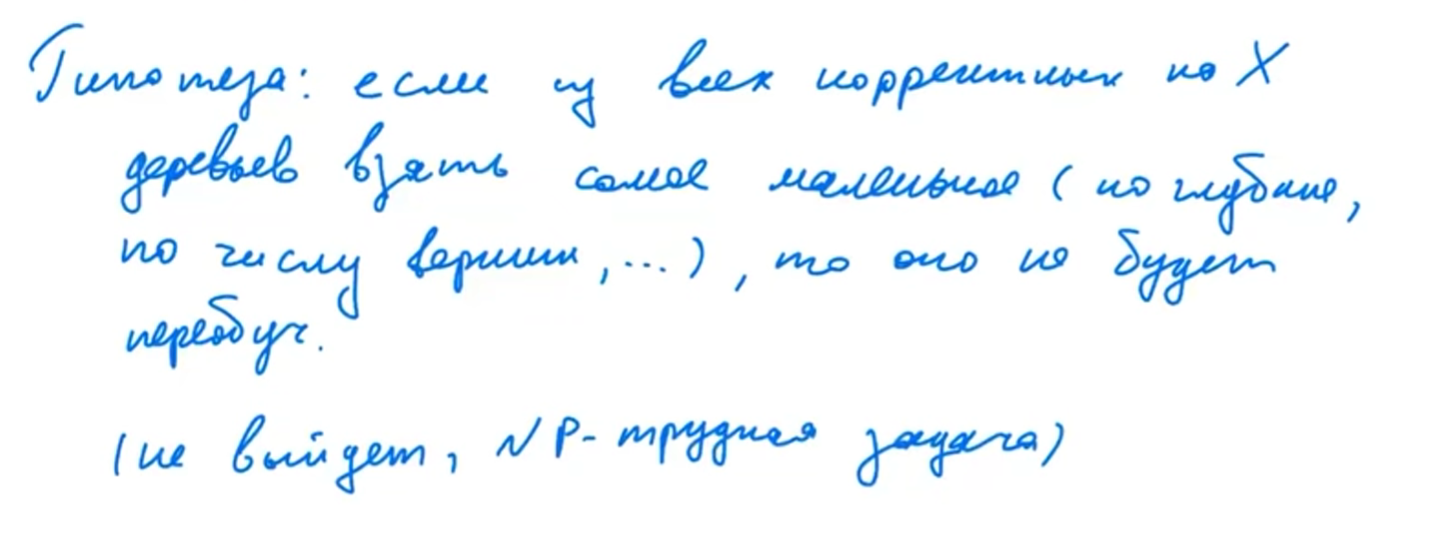 Гипотеза: если из всех корректных на X
деревьев взять самое маленькое (по глубине,
по числу вершин, ...), то оно не будет
переобуч.
(не выйдет, NP-трудная задача)